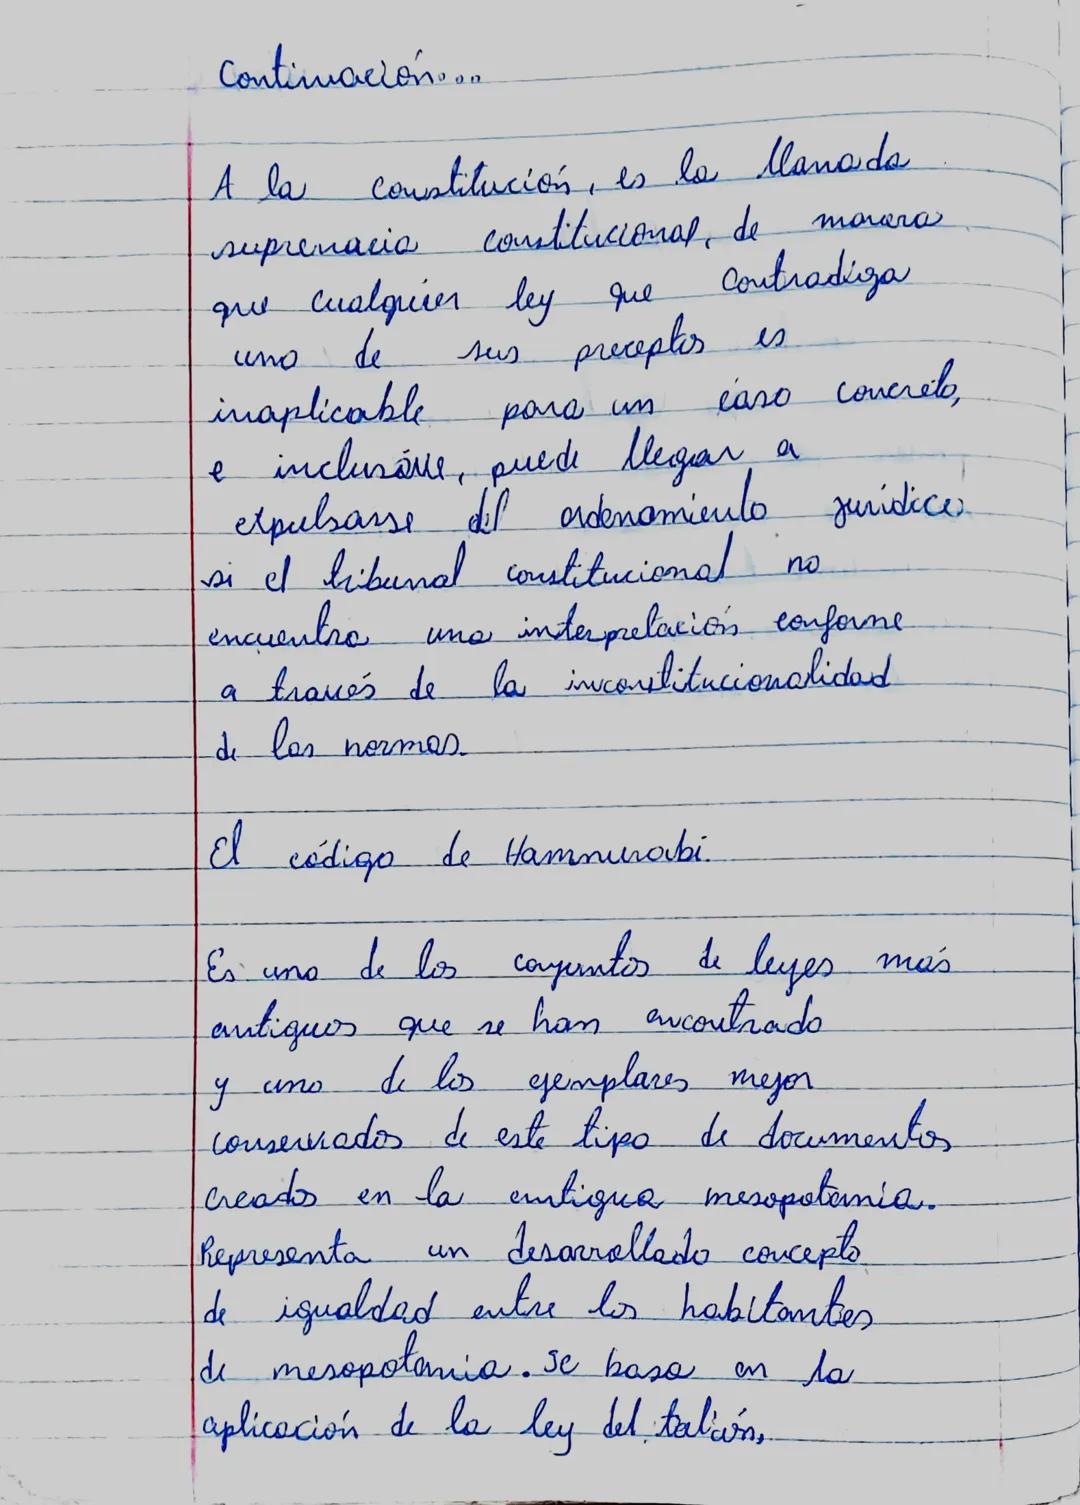 Continuación...
A la constitución, es la llamada
supremacia constitucional, de manera
que cualquier ley que contradiga
uno de sus preceptos es
inaplicable para un caso concreto,
e inclusive, puede llegar a
expulsarse del ordenamiento juridico
si el tribunal constitucional no
encuentra una interpretación conforme
a través de la inconstitucionalidad
de las normas.
El código de Hammurabi.
Es uno de los conjuntos de leyes más
antiguos que se han encontrado
y uno de los ejemplares mejor
conservados de este tipo de documentos
creados en la antigua mesopotamia.
Representa un desarrollado concepto
de igualdad entre los habitantes
de mesopotamia. Se basa en la
aplicación de la ley del talión,